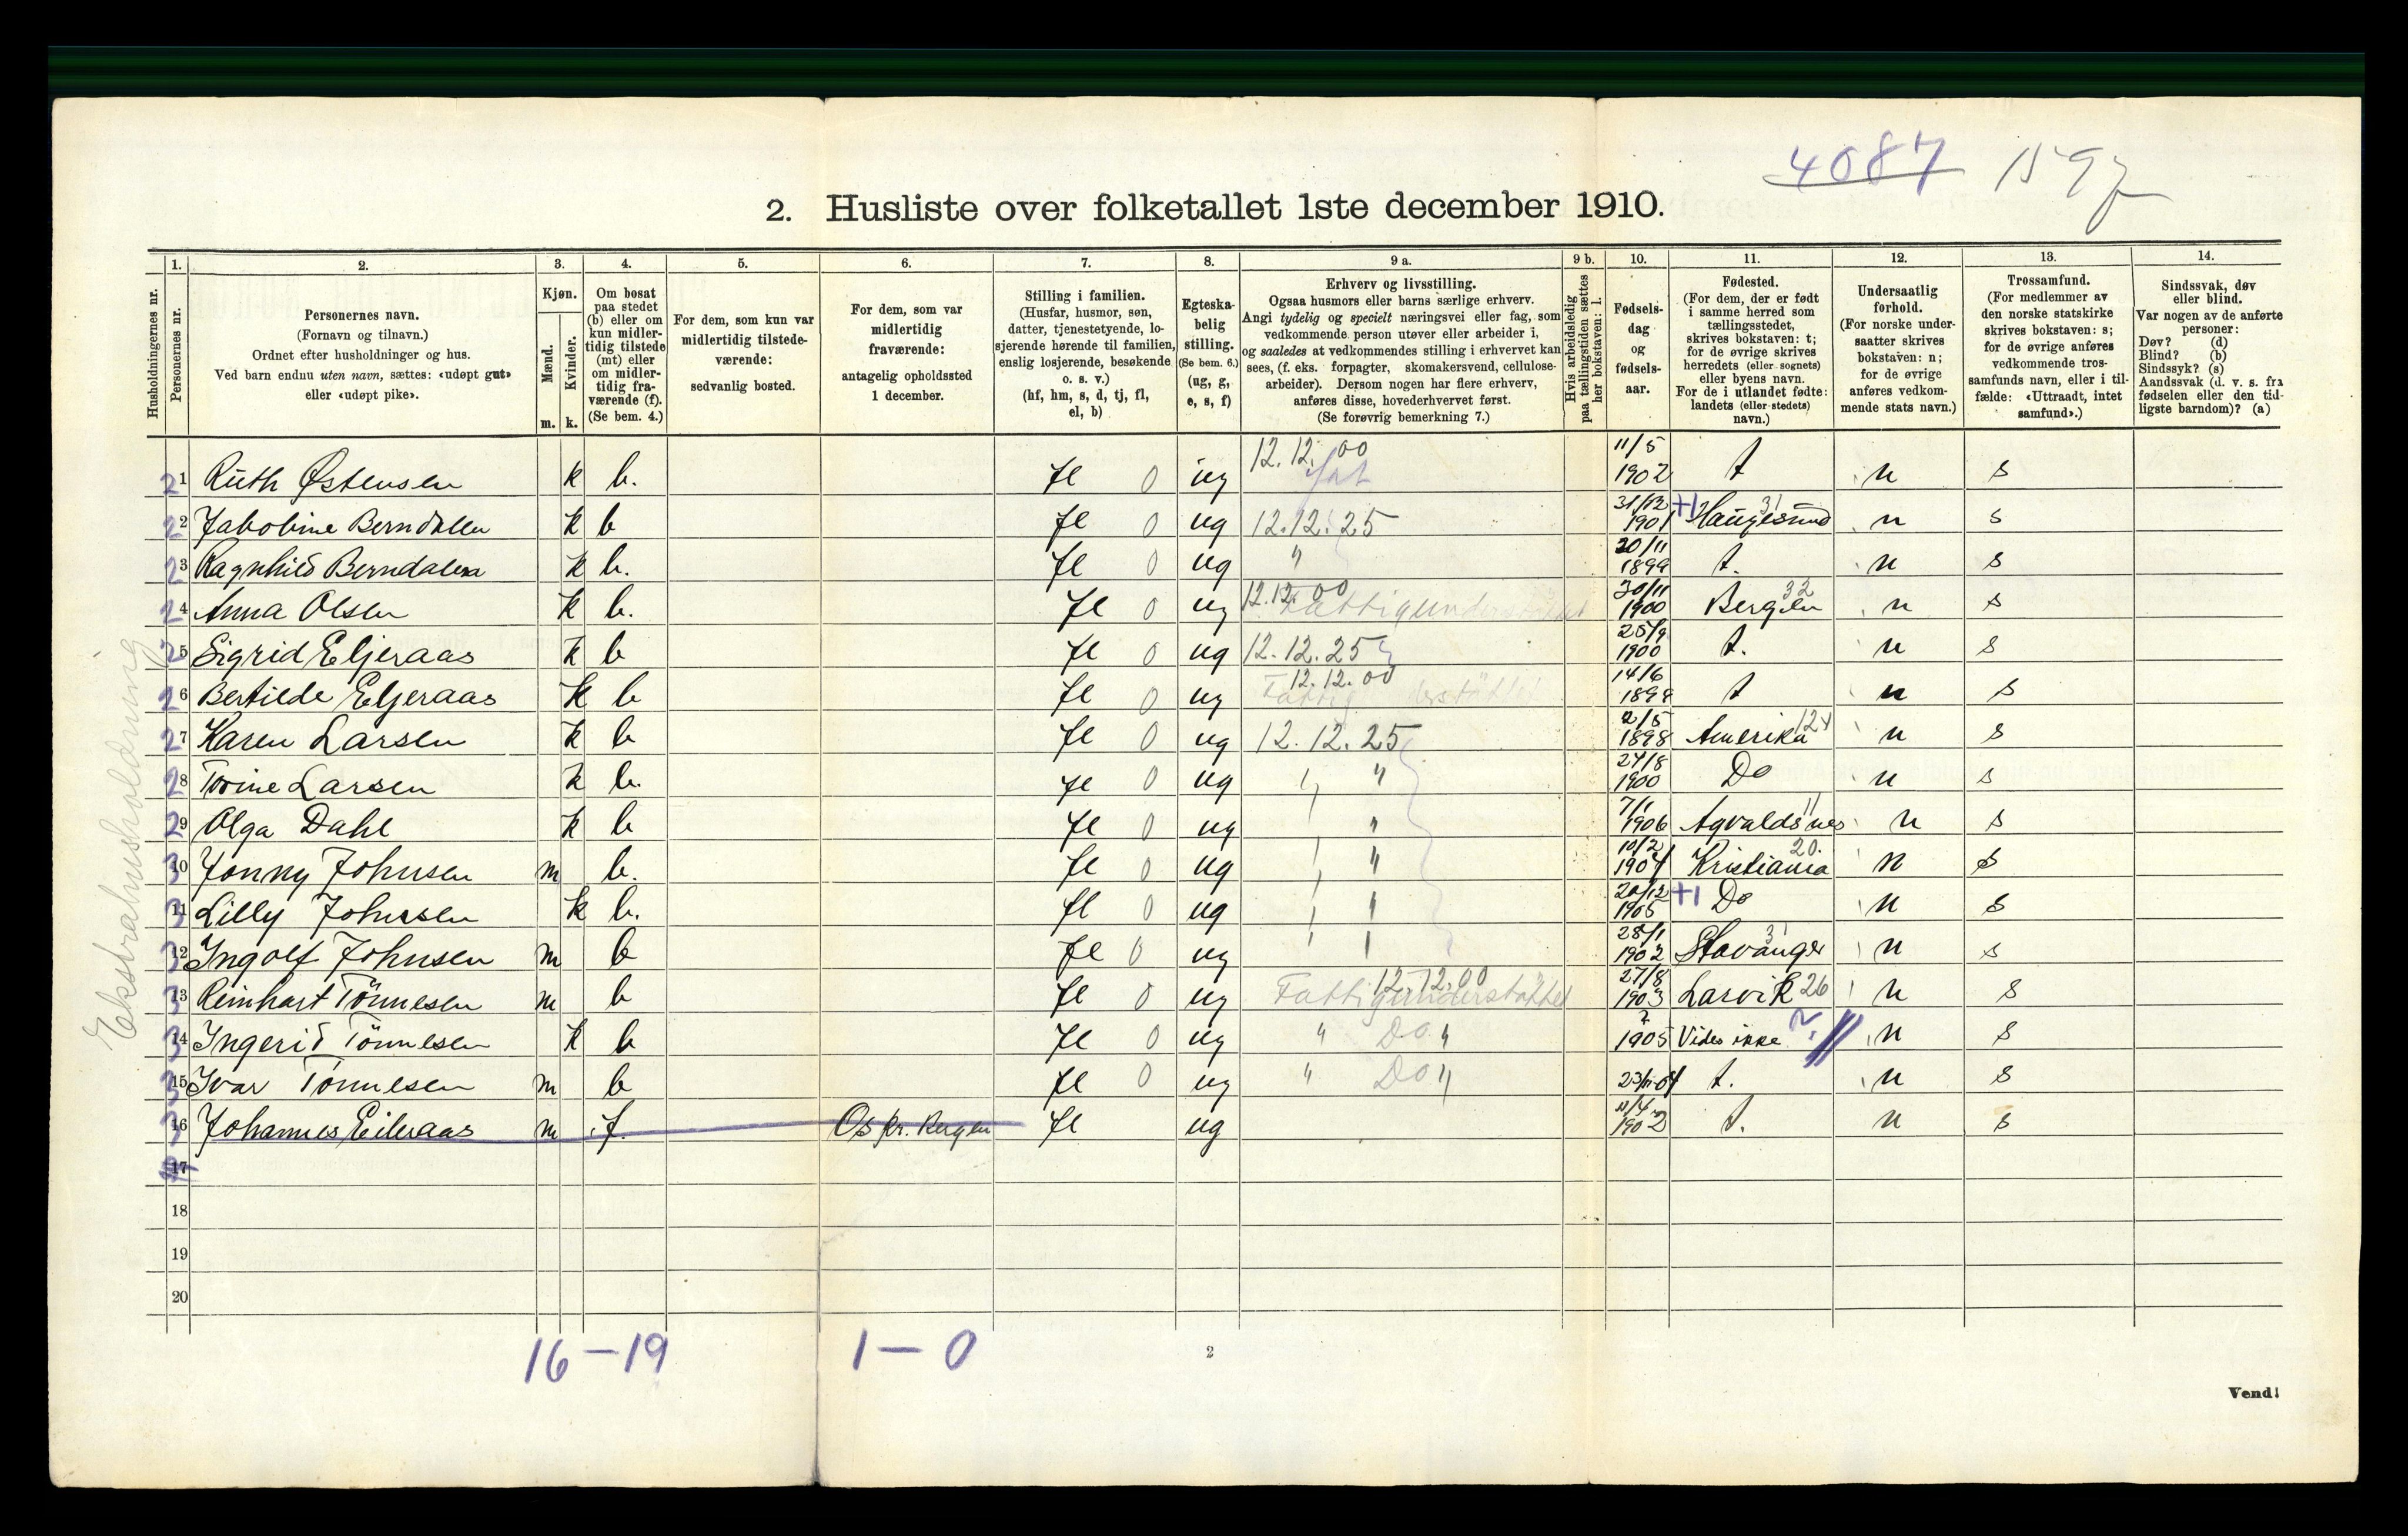 4087 159
2. Husliste over folketallet 1ste december 1910.
Husholdningernes nr.
1. Personernes nr.
2. Personernes navn. (Fornavn og tilnavn.) Ordnet efter husholdninger og hus. Ved barn endnu uten navn, sættes: «udøpt gut» eller «udøpt pike».
3. Kjøn. Mænd. m. Kvinder. k.
4. Om bosat paa stedet (b) eller om kun midlertidig tilstede (mt) eller om midlertidig fraværende (f). (Se bem. 4.)
5. For dem, som kun var midlertidig tilstedeværende: sedvanlig bosted.
6. For dem, som var midlertidig fraværende: antagelig opholdssted 1 december.
7. Stilling i familien. (Husfar, husmor, søn, datter, tjenestetyende, losjerende hørende til familien, enslig losjerende, besøkende o. s. v.) (hf, hm, s, d, tj, fl, el, b)
8. Egteskabelig stilling. (Se bem. 6.) (ug, g, e, s, f)
9 a. Erhverv og livsstilling. Ogsaa husmors eller barns særlige erhverv. Angi tydelig og specielt næringsvei eller fag, som vedkommende person utøver eller arbeider i, og saaledes at vedkommendes stilling i erhvervet kan sees, (f. eks. forpagter, skomakersvend, cellulosearbeider). Dersom nogen har flere erhverv, anføres disse, hovederhvervet først. (Se forøvrig bemerkning 7.)
9 b. Hvis arbeidsledig paa tællingstiden sættes her bokstaven: l.
10. Fødselsdag og fødselsaar.
11. Fødested. (For dem, der er født i samme herred som tællingsstedet, skrives bokstaven: t; for de øvrige skrives herredets (eller sognets) eller byens navn. For de i utlandet fødte: landets (eller stedets) navn.)
12. Undersaatlig forhold. (For norske undersaatter skrives bokstaven: n; for de øvrige anføres vedkommende stats navn.)
13. Trossamfund. (For medlemmer av den norske statskirke skrives bokstaven: s; for de øvrige anføres vedkommende trossamfunds navn, eller i tilfælde: «Uttraadt, intet samfund».)
14. Sindssvak, døv eller blind. Var nogen av de anførte personer: Døv? (d) Blind? (b) Sindssyk? (s) Aandssvak (d. v. s. fra fødselen eller den tidligste barndom)? (a)
Ekstrahusholdning
1 Ruth Østensen k b. fl 0 ug 12.12.00 11/5 1902 t n s
2 Jakobine Berndalen k b fl 0 ug 12.12.25 31/12 1901 +1 Haugesund 31 n s
3 Ragnhild Berndalen k b. fl 0 ug " 20/11 1899 t. n s
4 Anna Olsen k b. fl 0 ug 12.12.00 Fattigunderstøttet 30/11 1900 Bergen 32 n s
5 Sigrid Eljeraas k b fl 0 ug 12.12.25 25/9 1900 t. n s
6 Bertilde Eljeraas k b fl 0 ug 12.12.00 14/6 1898 t n s
7 Karen Larsen k b fl 0 ug 12.12.25 2/5 1898 Amerika 124 n s
8 Torine Larsen k b. fl 0 ug " " 27/8 1900 Do n s
9 Olga Dahl k b fl 0 ug " " 7/1 1906 Agvaldsnes 11 n s
10 Jonny Johnsen m b. fl 0 ug " " 10/2 1904 Kristiania 20. n s
11 Lilly Johnsen k b. fl 0 ug " " 20/12 1905 +1 Do n s
12 Ingolf Johnsen m b fl 0 ug " " 28/1 1902 Stavanger 31 n s
13 Reinhart Tönnesen m b fl 0 ug 12.12.00 Fattigunderstøttet 27/8 1903 Larvik 26 n s
14 Ingerid Tönnesen k b fl 0 ug " Do " ? 1905 Vides ikke ? n s
15 Ivar Tönnesen m b fl 0 ug " Do " t. n s
16 Johannes Eileraas m f. Os pr. Bergen fl ug 11/4 1902 t. n s
17
18
19
20
16 – 19 1 – 0
2
Vend!